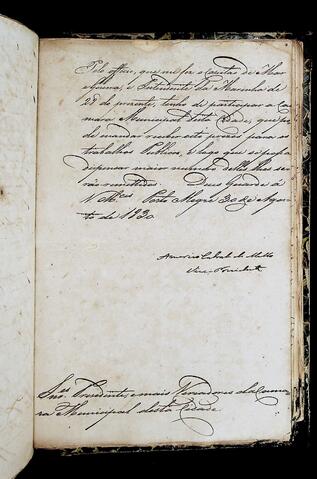 Pelo officio, que me fez o Capitão de Mar
e Guerra, e Intendente da Marinha de
28 do corrente, tenho de participar a Ca-
mara Municipal desta Cidade, que pó-
de mandar receber este preso para os
trabalhos Publicos, e logo que se possa
dispensar maior numero delles lhes se-
rão remettidos. Deos Guarde á
V. M.ces Porto Alegre 30 de Agos-
to de 1830
Americo Cabral de Mello
Vice-Presidente
Snr.es Presidente e mais Vereadores da Cama-
ra Municipal desta Cidade